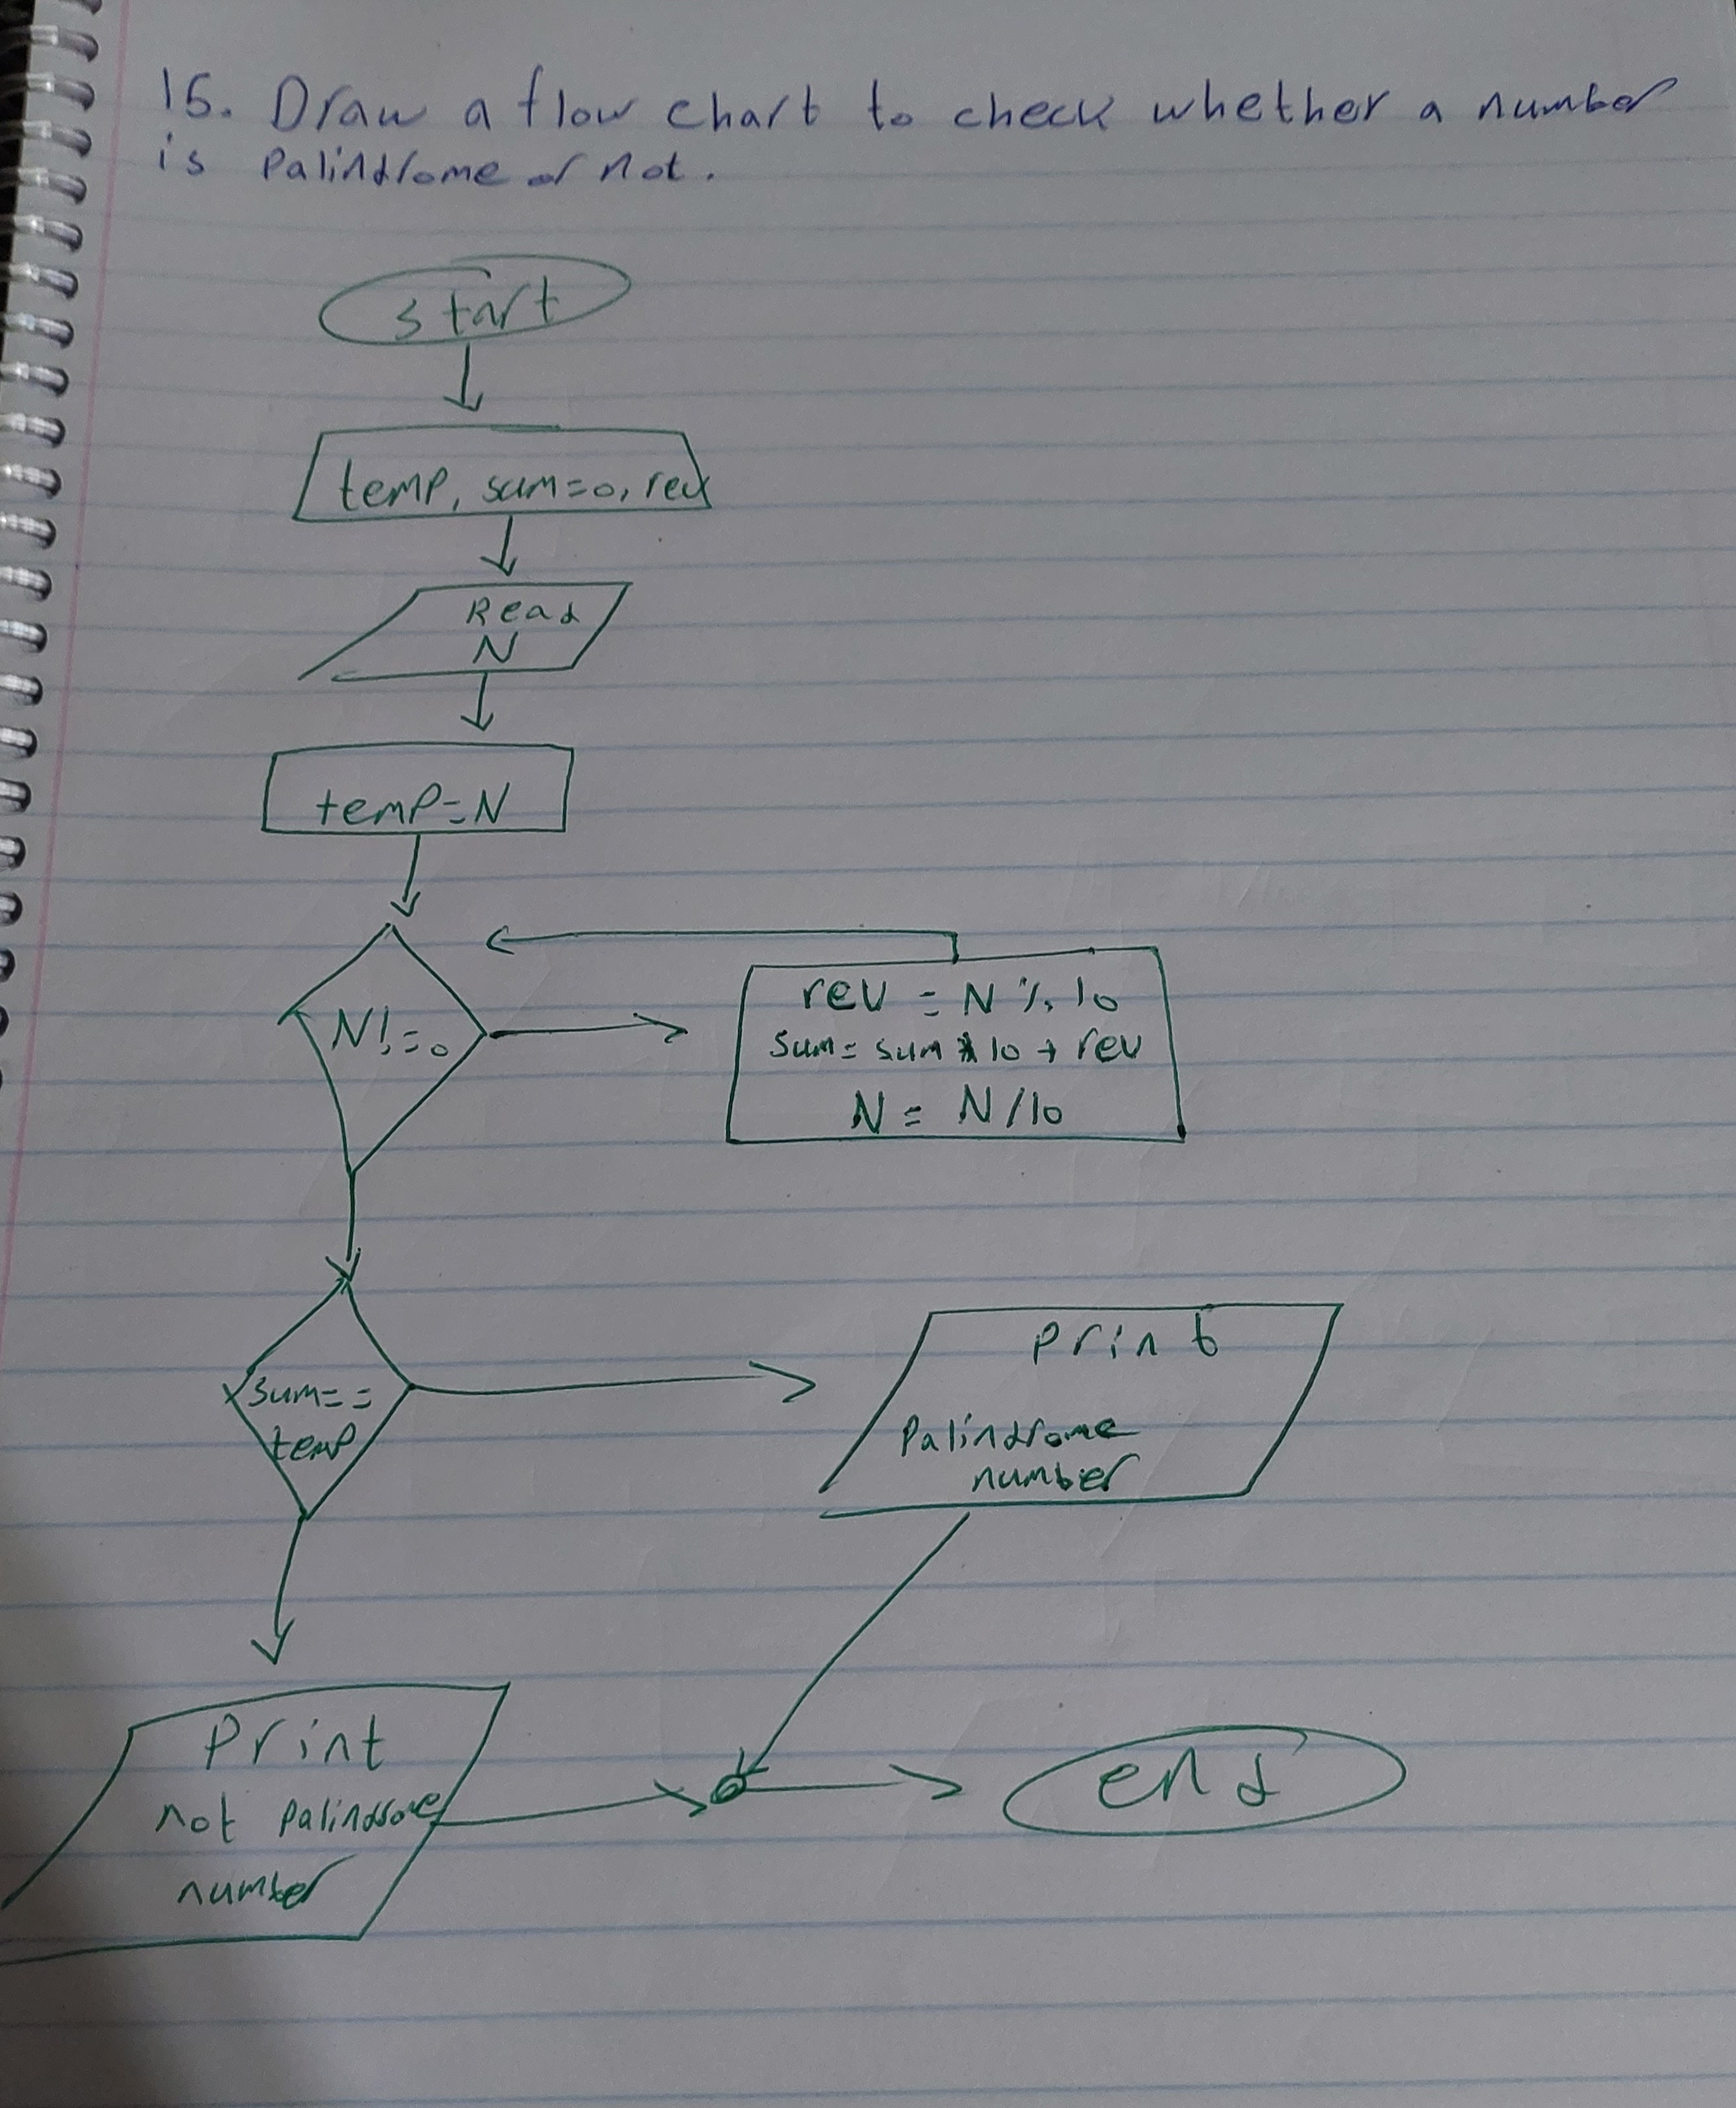 15. Draw a flow chart to check whether a number
is Palindrome or not.
start
temp, sum=0, rev
Read
N
temp=N
N!=0
rev = N % 10
sum= sum * 10 + rev
N = N/10
sum==
temp
print
Palindrome
number
Print
not palindrome
number
end